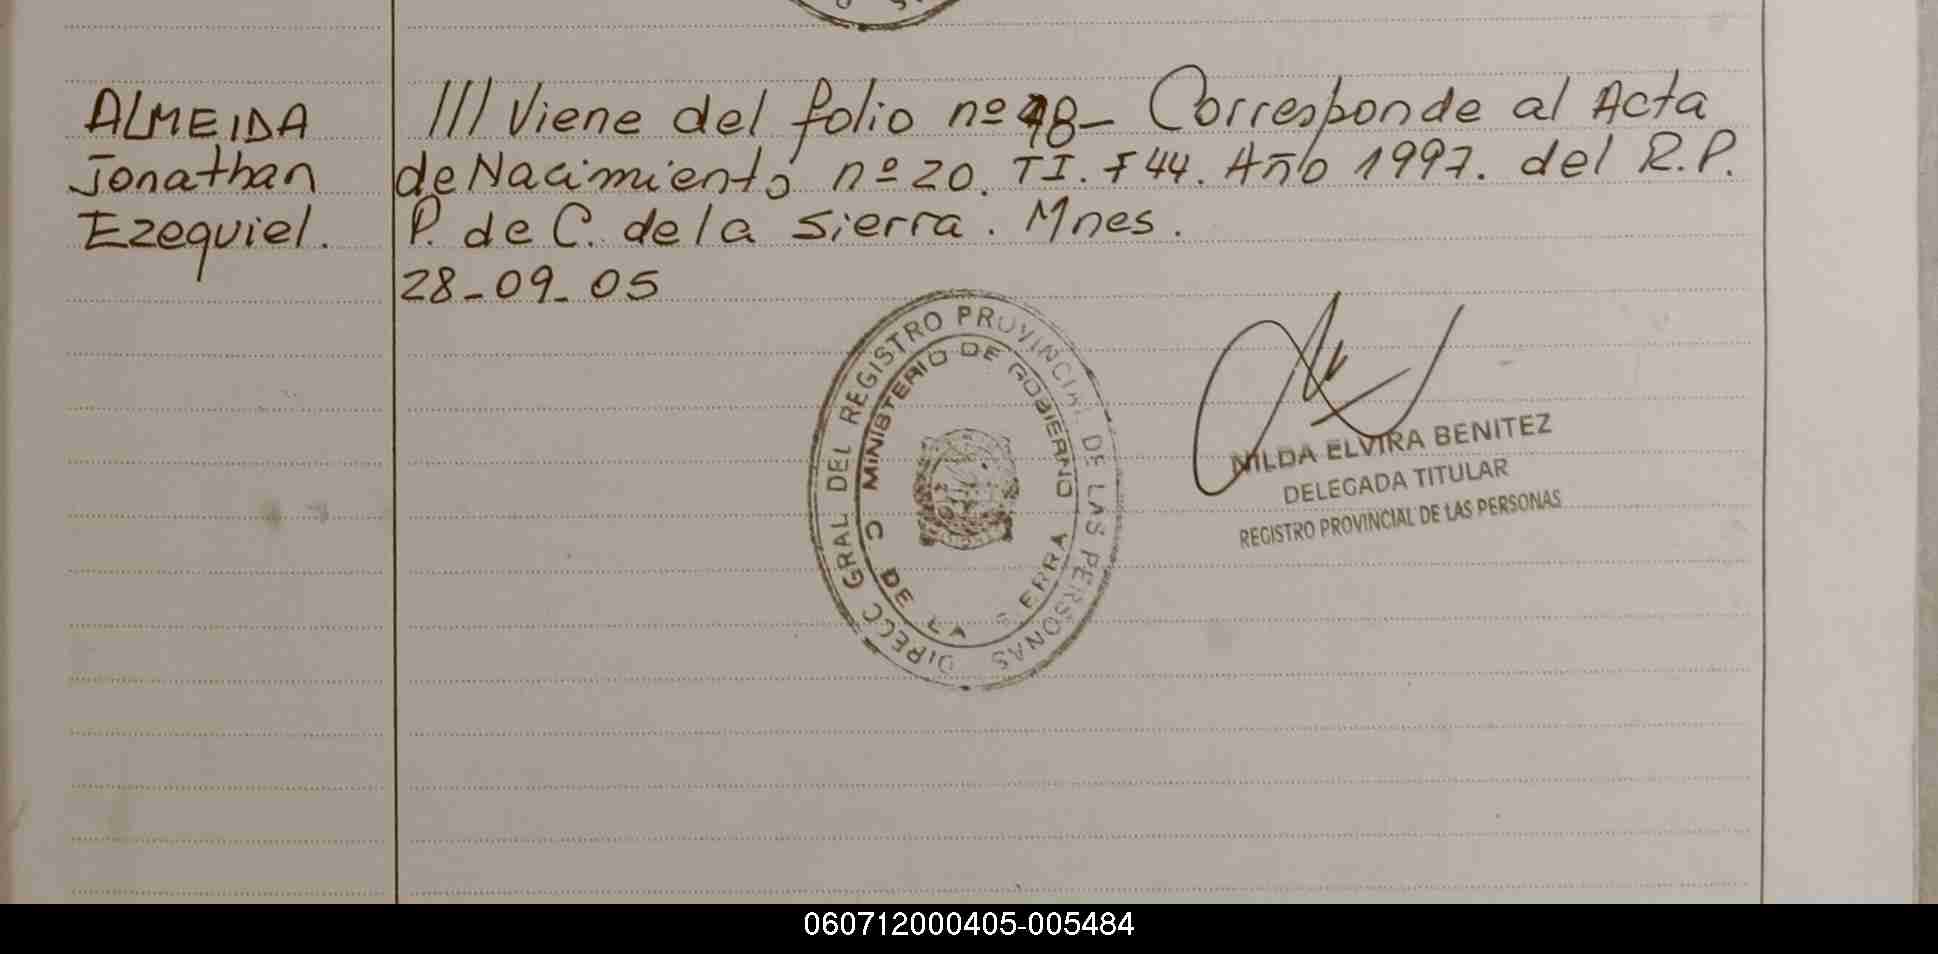 ALMEIDA
Jonathan
Ezequiel.
/// Viene del folio nº 48- Corresponde al Acta
de Nacimiento nº 20. TI. F 44. Año 1997. del R.P.
P. de C. de la Sierra. Mnes.
28-09-05
DIRECC GRAL DEL REGISTRO PROVINCIAL DE LAS PERSONAS
MINISTERIO DE GOBIERNO
C DE LA SIERRA
NILDA ELVIRA BENITEZ
DELEGADA TITULAR
REGISTRO PROVINCIAL DE LAS PERSONAS
060712000405-005484